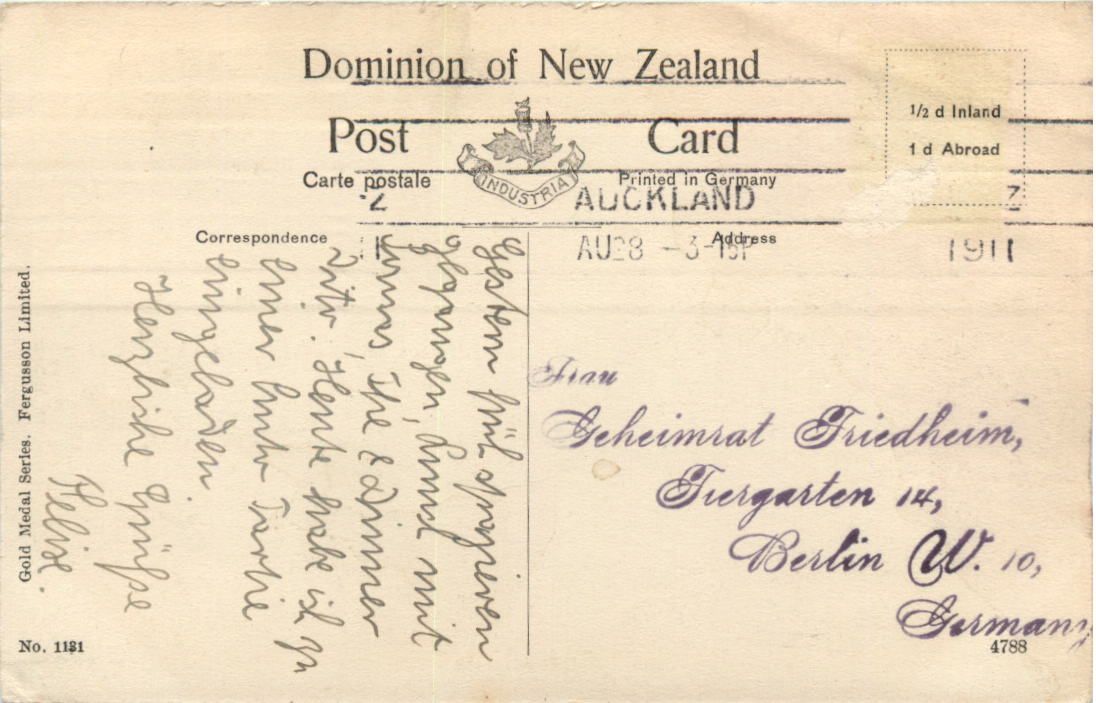 Dominion of New Zealand
Post Card
INDUSTRIA
Carte postale
Printed in Germany
1/2 d Inland
1 d Abroad
AUCKLAND
AU28 -3-15P
1911
Correspondence
Address
Gestern früh spazieren
gegangen, Lunch mit
Jonas, The & Dinner
Dito. Heute habe ich zu
einer Auto Partie
eingeladen.
Herzliche Grüße
Frau
Geheimrat Friedheim,
Tiergarten 14,
Berlin W. 10,
Germany
Gold Medal Series. Fergusson Limited.
No. 1131
4788